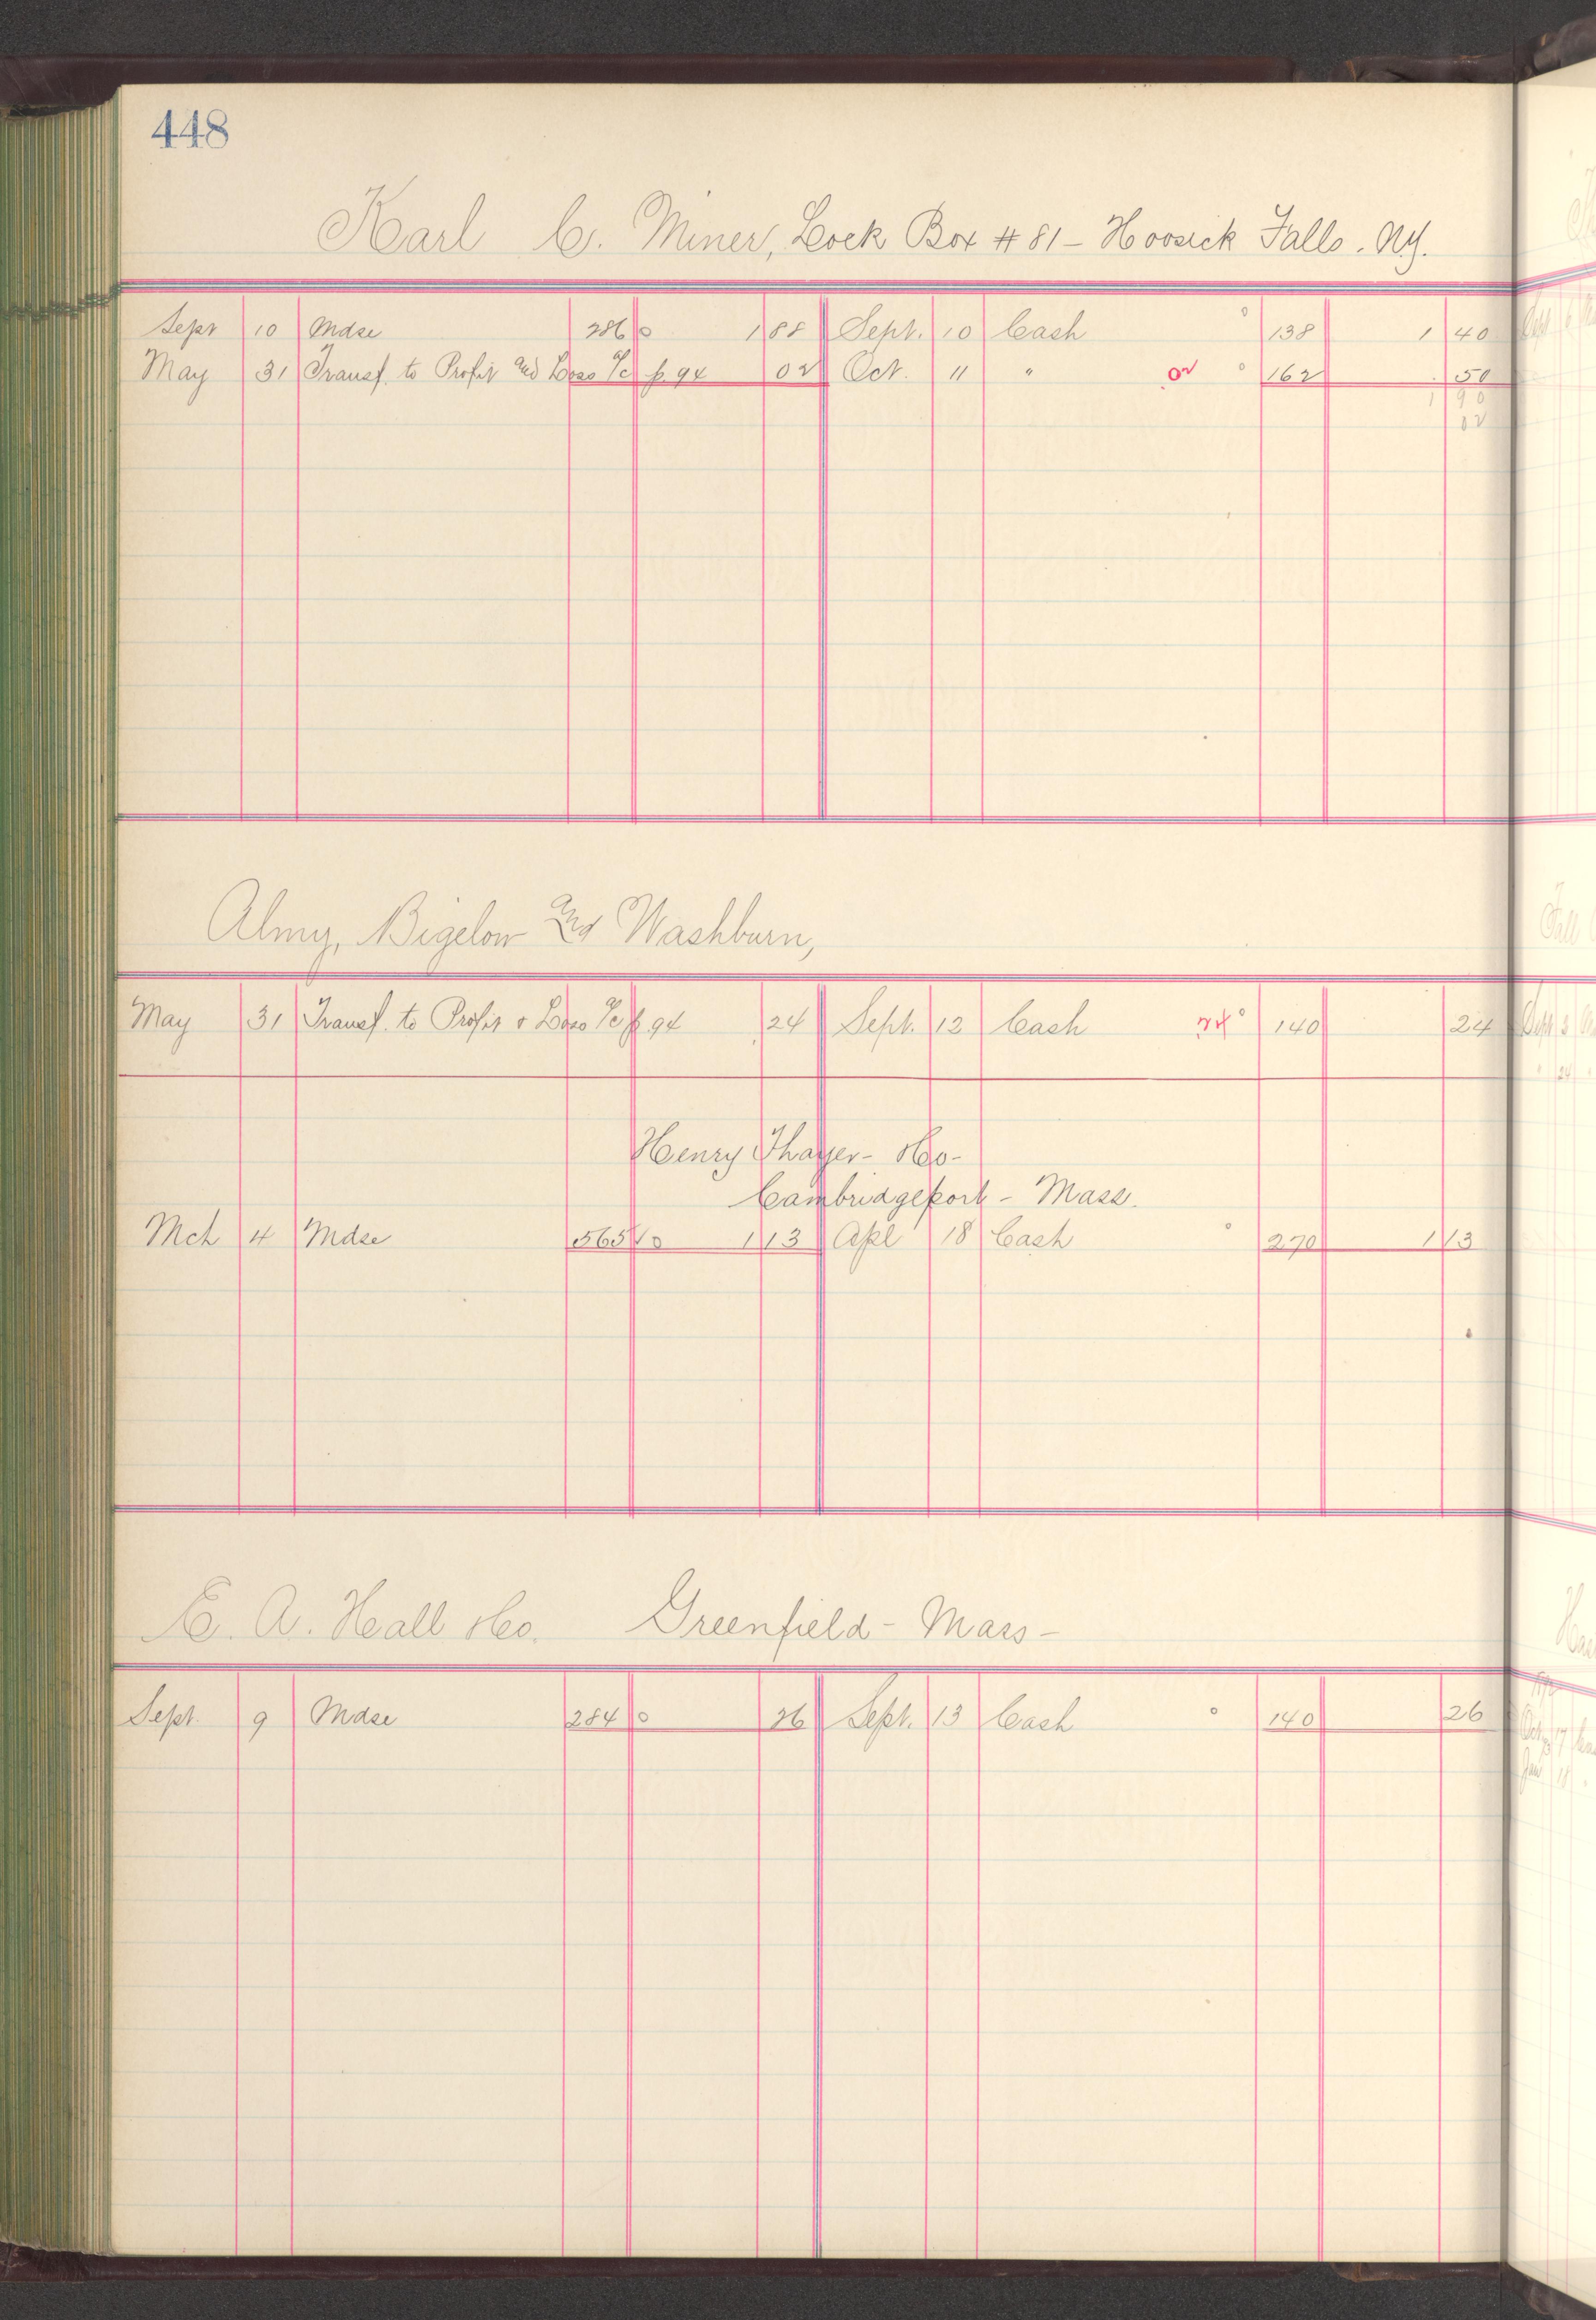 448
Karl C. Miner, Lock Box # 81 - Hoosick Falls. N.Y.
Sept 10 Mdse 286 0 1 88 Sept. 10 Cash 0 138 1 40
May 31 Transf. to Profit and Loss a/c p. 94 02 Oct. 11 " 02 0 162 50
1 90
02
Almy, Bigelow and Washburn,
May 31 Transf. to Profit & Loss a/c p 94 24 Sept. 12 Cash 24 0 140 24
Henry Thayer - & Co -
Cambridgeport - Mass.
Mch 4 Mdse 565 1 13 Apl 18 Cash 0 270 1 13
E. A. Hall & Co. Greenfield - Mass -
Sept. 9 Mdse 284 0 26 Sept. 13 Cash 0 140 26